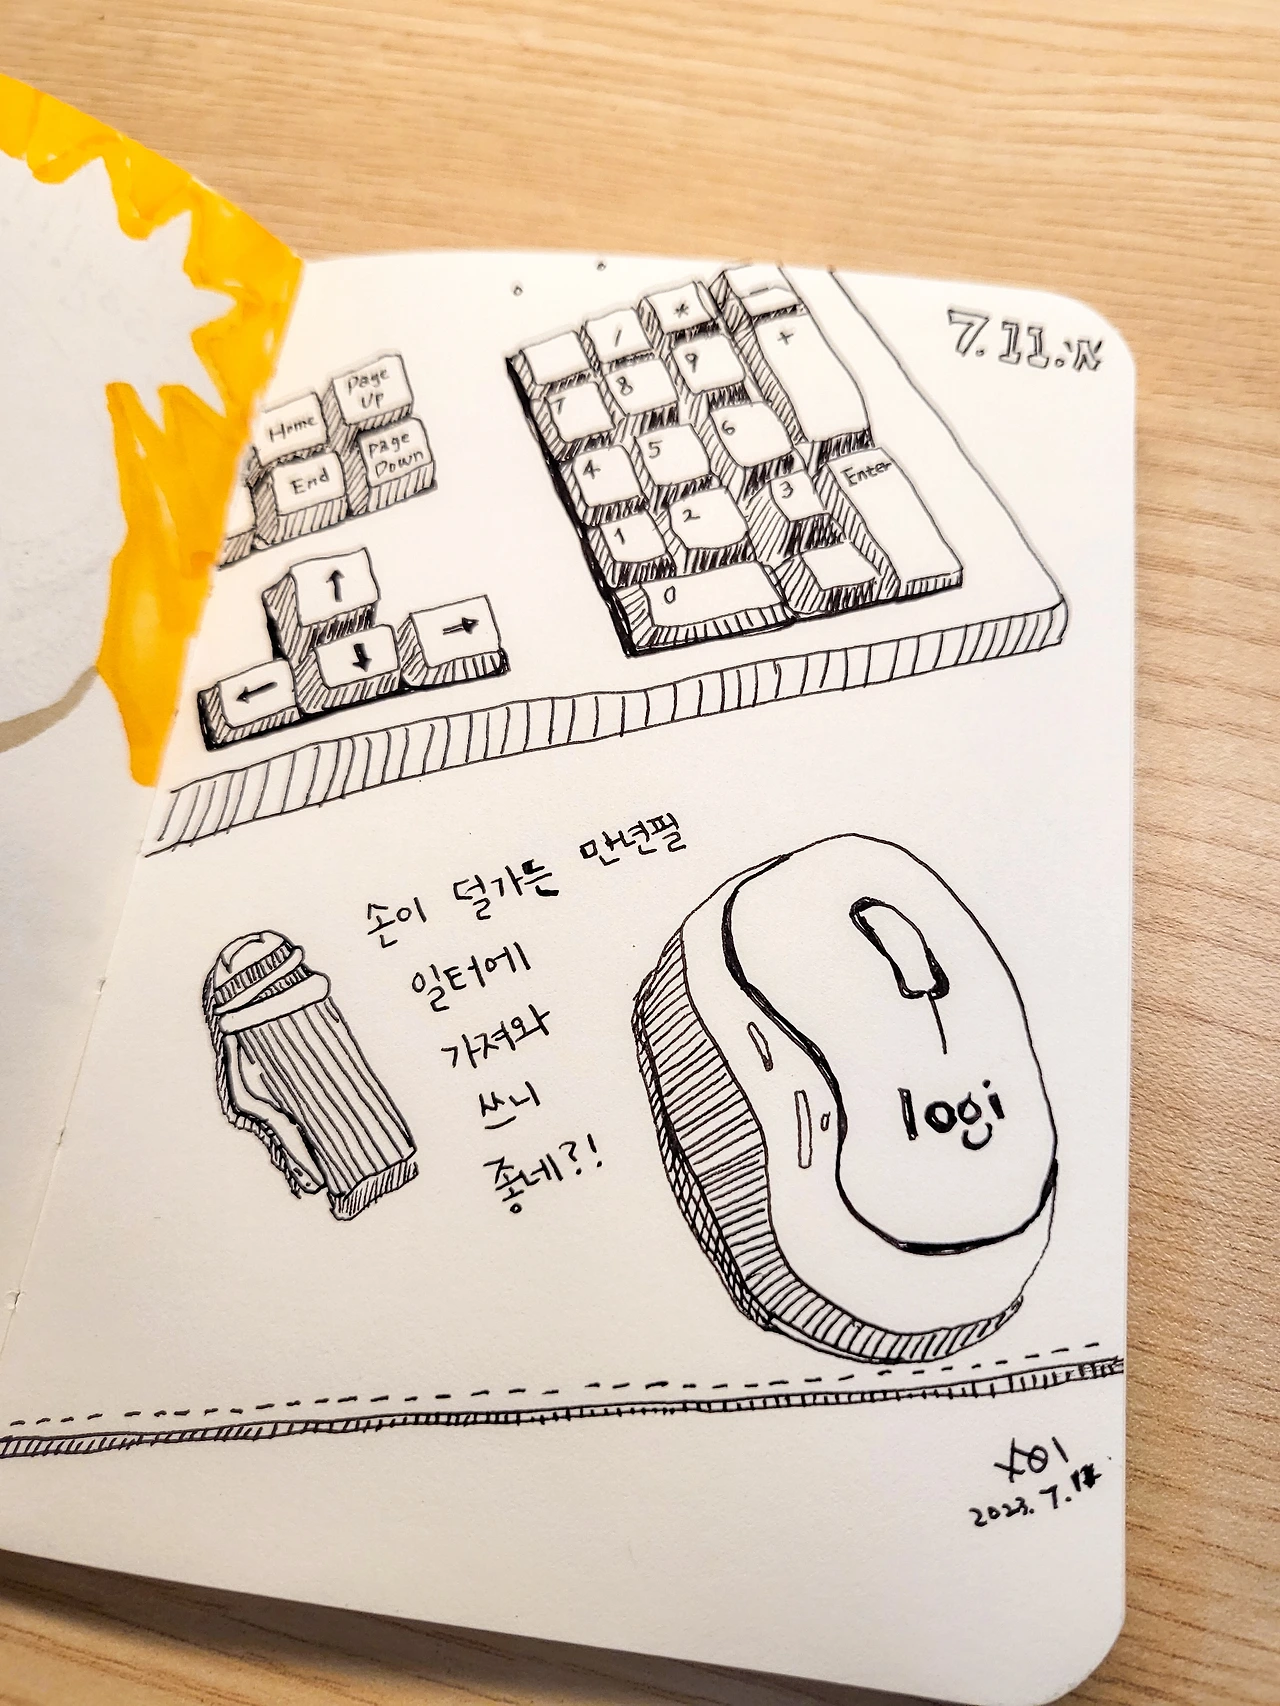 7.11.
Page Up
Home
Page Down
End
↑
← ↓ →
/ * -
7 8 9 +
4 5 6
1 2 3 Enter
0
손이 덜가는 만년필
일터에
가져와
쓰니
좋네?!
logi
2023. 7.